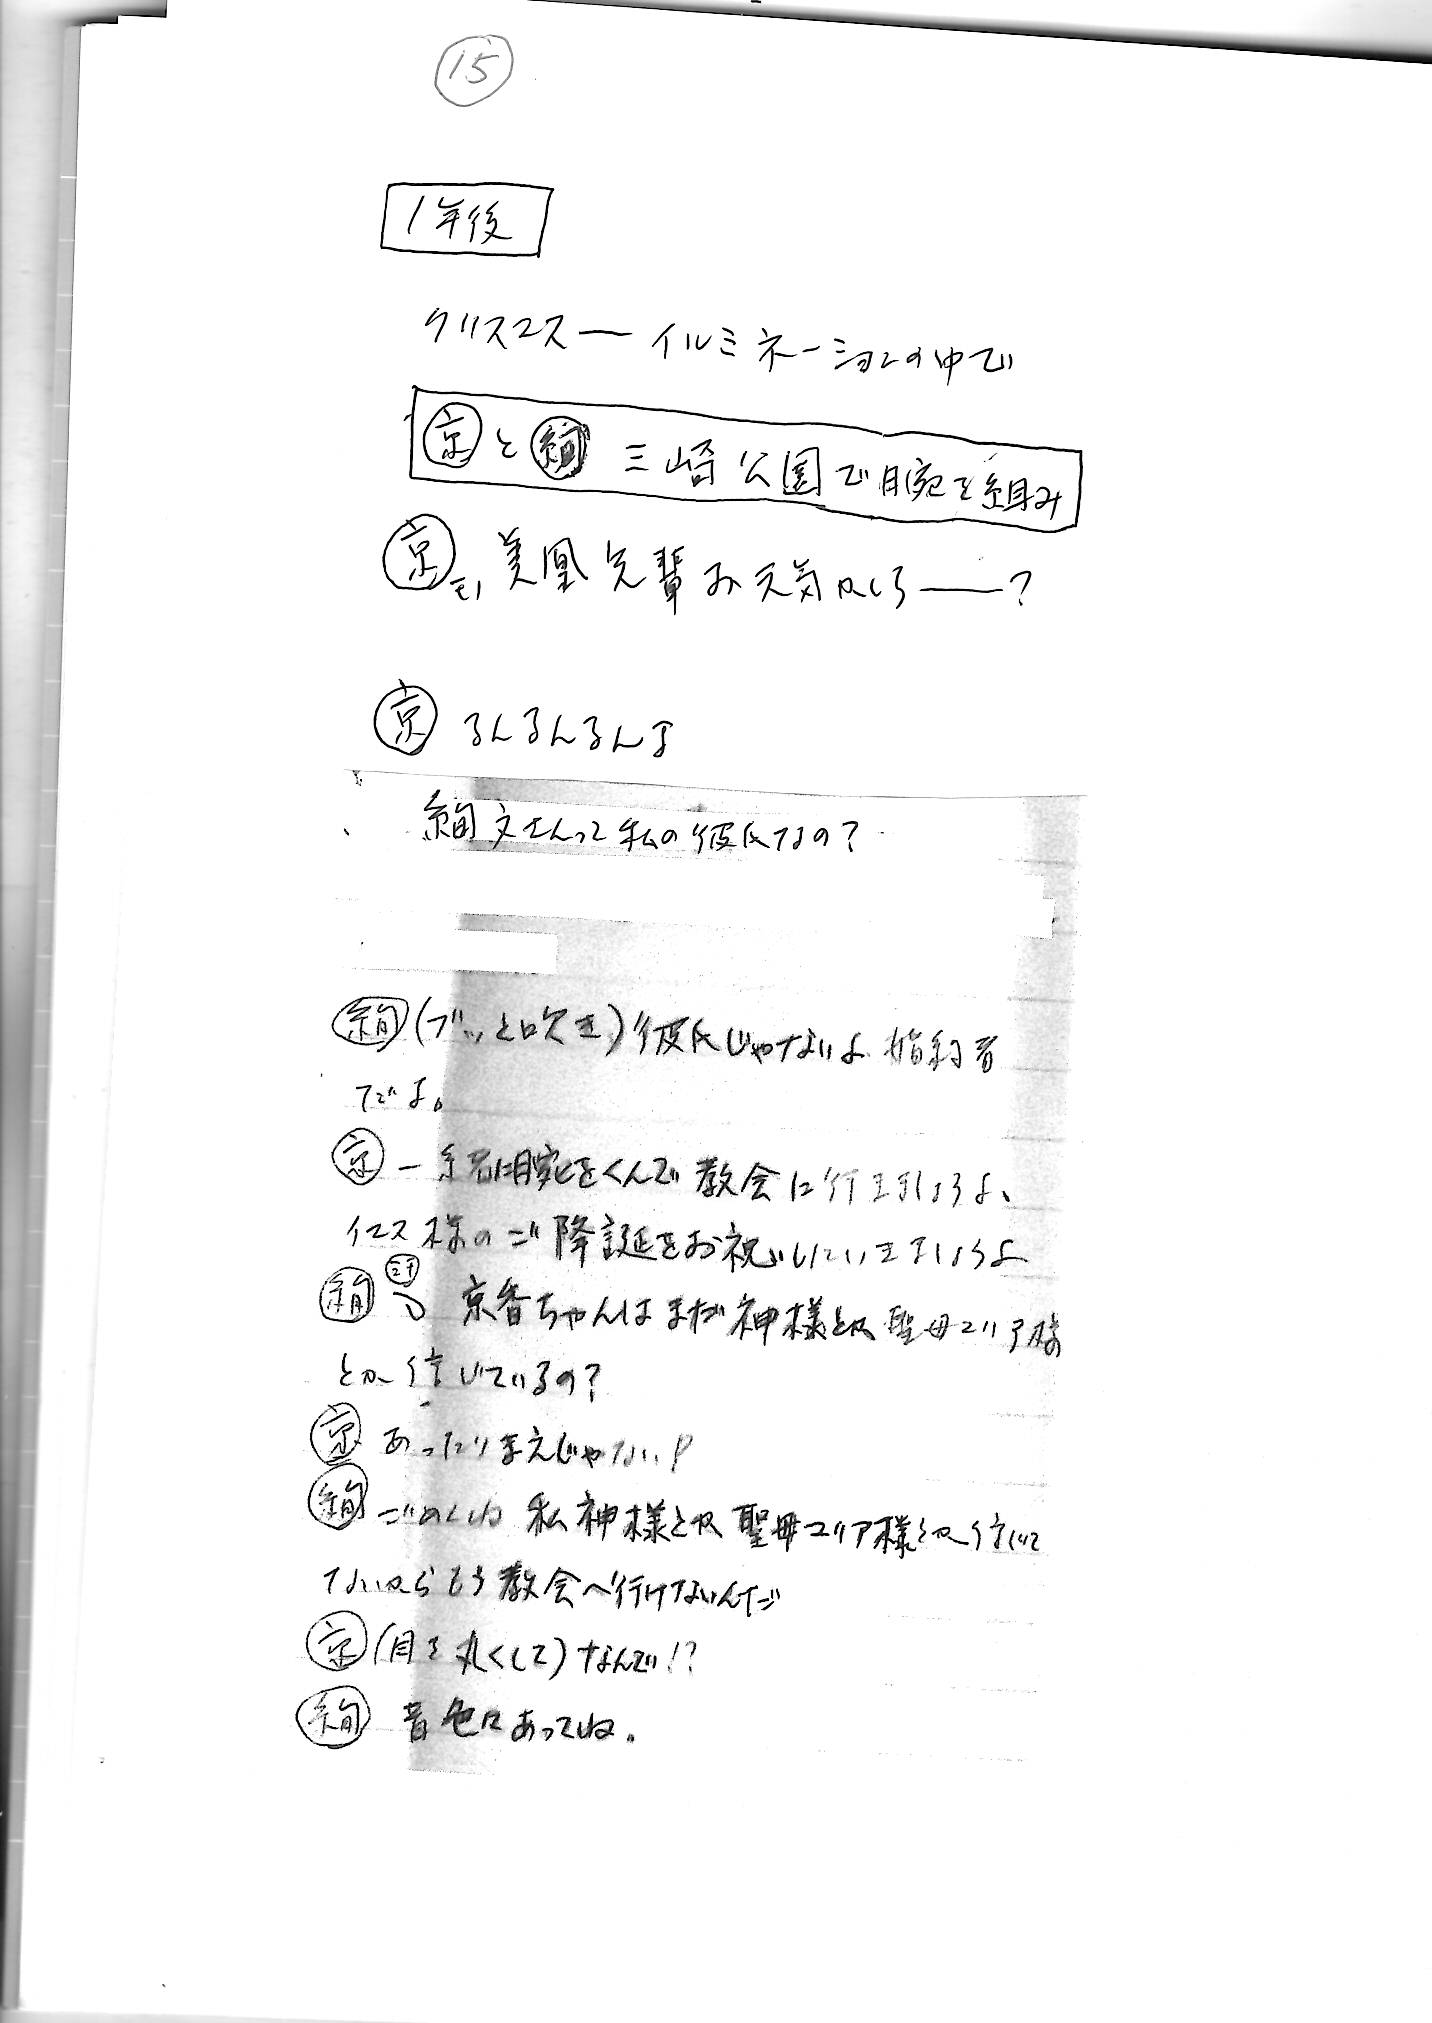 15
1年後
クリスマス―イルミネーションの中で
京と絢 三崎公園で腕を組み
京 モ, 美凰先輩お元気かしら―?
京 るんるんるん♪
絢文さんって私の彼氏なの?
絢(ブッと吹き)彼氏じゃないよ 婚約者
だよ。
京 一緒に腕をくんで教会に行きましょうよ、
イエス様のご降誕をお祝いしにいきましょうよ
絢 京香ちゃんはまだ神様とか聖母マリア様
とか信じているの?
京 あったりまえじゃない!
絢 ごめんね 私神様とか聖母マリア様とか信じて
ないからもう教会へ行けないんだ
京(目を丸くして)なんで!?
絢 昔色々あってね。